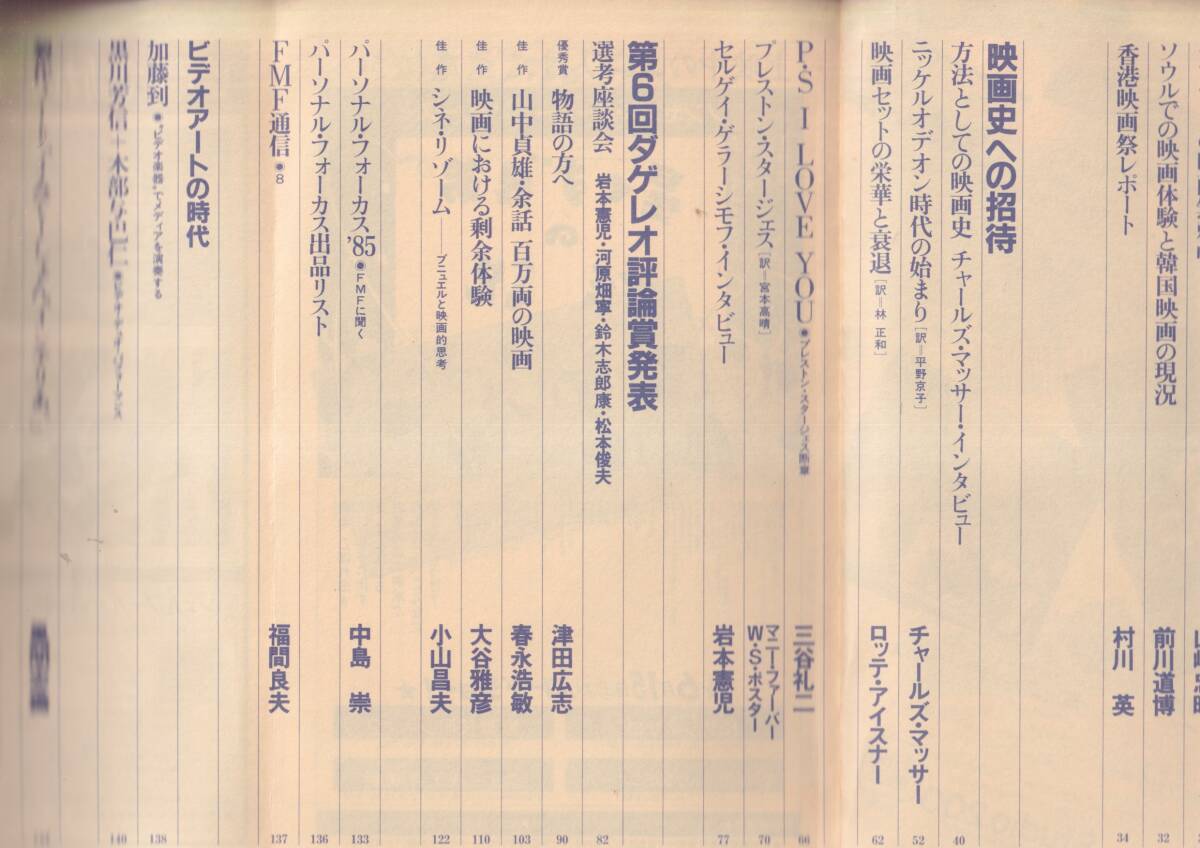 ソウルでの映画体験と韓国映画の現況 前川道博 32
香港映画祭レポート 村川 英 34
映画史への招待
方法としての映画史 チャールズ・マッサー・インタビュー 40
ニッケルオデオン時代の始まり[訳=平野京子] チャールズ・マッサー 52
映画セットの栄華と衰退[訳=林 正和] ロッテ・アイスナー 62
P・S I LOVE YOU●プレストン・スタージェス断章 三谷礼二 66
プレストン・スタージェス[訳=宮本高晴] マニー・ファーバー W・S・ポスター 70
セルゲイ・ゲラーシモフ・インタビュー 岩本憲児 77
第6回ダゲレオ評論賞発表
選考座談会 岩本憲児・河原畑寧・鈴木志郎康・松本俊夫 82
優秀賞 物語の方へ 津田広志 90
佳作 山中貞雄・余話 百万両の映画 春永浩敏 103
佳作 映画における剰余体験 大谷雅彦 110
佳作 シネ・リゾーム―ブニュエルと映画的思考 小山昌夫 122
パーソナル・フォーカス'85●FMFに聞く 中島 崇 133
パーソナル・フォーカス出品リスト 136
FMF通信●8 福間良夫 137
ビデオアートの時代
加藤到●“ビデオ楽器”でメディアを演奏する 138
黒川芳信+木部与巴仁●ビデオ・デ・オ・パフォーマンス 140